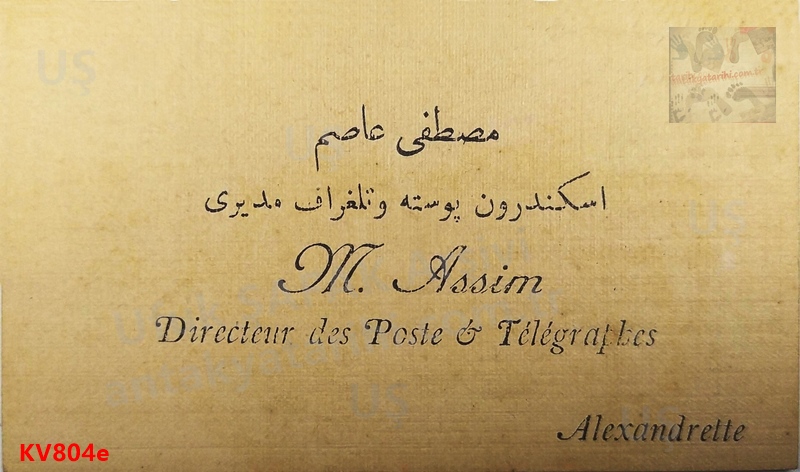 مصطفى عاصم
اسكندرون پوسته وتلغراف مديرى
M. Assim
Directeur des Poste & Télégraphes
Alexandrette
KV804e